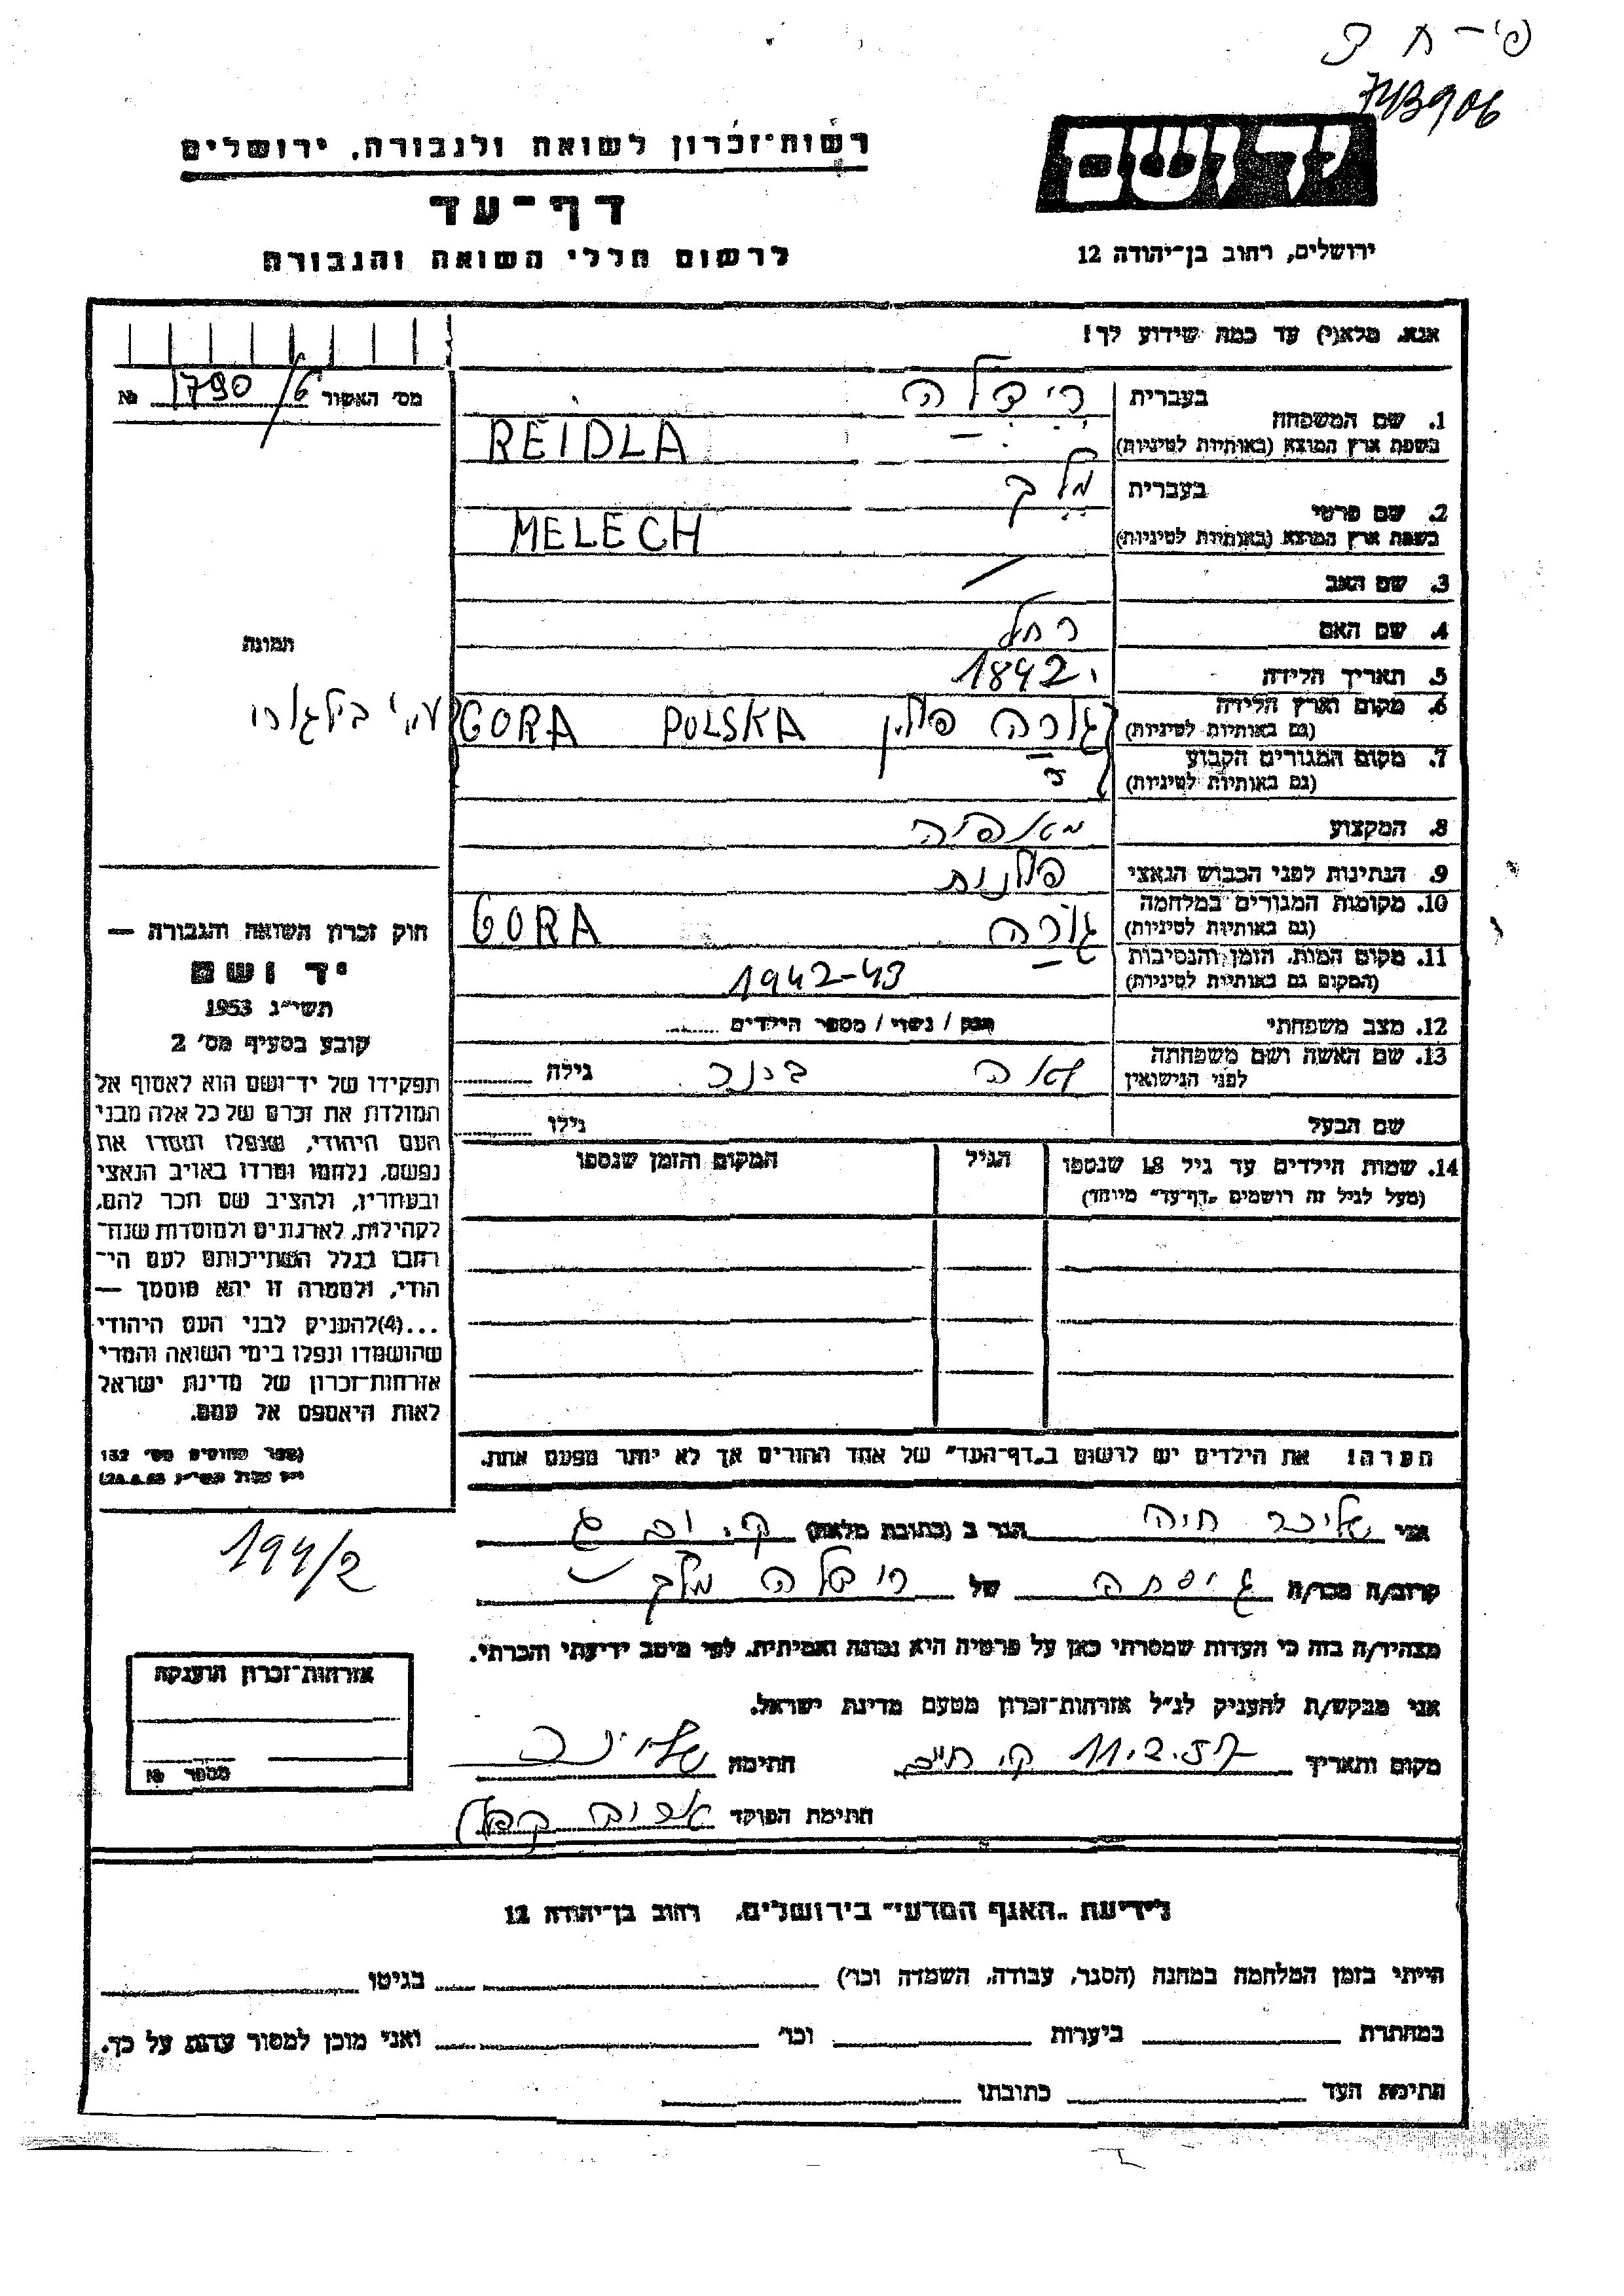 פ'-ח
743906
יד ושם
רשות־זכרון לשואה ולגבורה, ירושלים
דף־עד
לרשום חללי השואה והגבורה
ירושלים, רחוב בן־יהודה 12
אנא, מלא(י) עד כמה שידוע לך!
מס׳ האשור 1790/6 №
1. שם המשפחה
בעברית רידלה
בשפת ארץ המוצא (באותיות לטיניות) REIDLA
2. שם פרטי
בעברית מלך
בשפת ארץ המוצא (באותיות לטיניות) MELECH
3. שם האב /
4. שם האם רחל
תמונה
5. תאריך הלידה 1842
6. מקום וארץ הלידה
(גם באותיות לטיניות) גורה פולין GORA POLSKA ע"י בילגורי
7. מקום המגורים הקבוע
(גם באותיות לטיניות)
8. המקצוע מאפיה
9. הנתינות לפני הכבוש הנאצי פולנית
10. מקומות המגורים במלחמה
(גם באותיות לטיניות) גורה GORA
11. מקום המות, הזמן והנסיבות
(המקום גם באותיות לטיניות) 1942-43
12. מצב משפחתי רווק / נשוי / מספר הילדים
13. שם האשה ושם משפחתה
לפני הנישואין גילה
שם הבעל גילו
14. שמות הילדים עד גיל 18 שנספו
(מעל לגיל זה רושמים „דף־עד״ מיוחד)
הגיל
המקום והזמן שנספו
חוק זכרון השואה והגבורה —
יד ושם
תשי״ג 1953
קובע בסעיף מס׳ 2
תפקידו של יד־ושם הוא לאסוף אל
המולדת את זכרם של כל אלה מבני
העם היהודי, שנפלו ומסרו את
נפשם, נלחמו ומרדו באויב הנאצי
ובעוזריו, ולהציב שם וזכר להם,
לקהילות, לארגונים ולמוסדות שנח־
רבו בגלל השתייכותם לעם הי־
הודי, ולמטרה זו יהא מוסמך —
...(4)להעניק לבני העם היהודי
שהושמדו ונפלו בימי השואה והמרי
אזרחות־זכרון של מדינת ישראל
לאות היאספם אל עמם.
(ספר החוקים מס׳ 132
הערה! את הילדים יש לרשום ב„דף־העד״ של אחד ההורים אך לא יותר מפעם אחת.
אני חיה הגר ב (כתובת מלאה)
קרוב/ה מכר/ה גיסתה של רידלה מלך
מצהיר/ה בזה כי העדות שמסרתי כאן על פרטיה היא נכונה ואמיתית, לפי מיטב ידיעתי והכרתי.
אני מבקש/ת להעניק לנ״ל אזרחות־זכרון מטעם מדינת ישראל.
מקום ותאריך 11.2.57 חתימה
חתימת הפוקד
194/2
אזרחות־זכרון הוענקה
מספר №
לידיעת „האגף המדעי״ בירושלים, רחוב בן־יהודה 12
הייתי בזמן המלחמה במחנה (הסגר, עבודה, השמדה וכו׳) בגיטו
במחתרת ביערות וכו׳ ואני מוכן למסור עדות על כך.
חתימת העד כתובתו